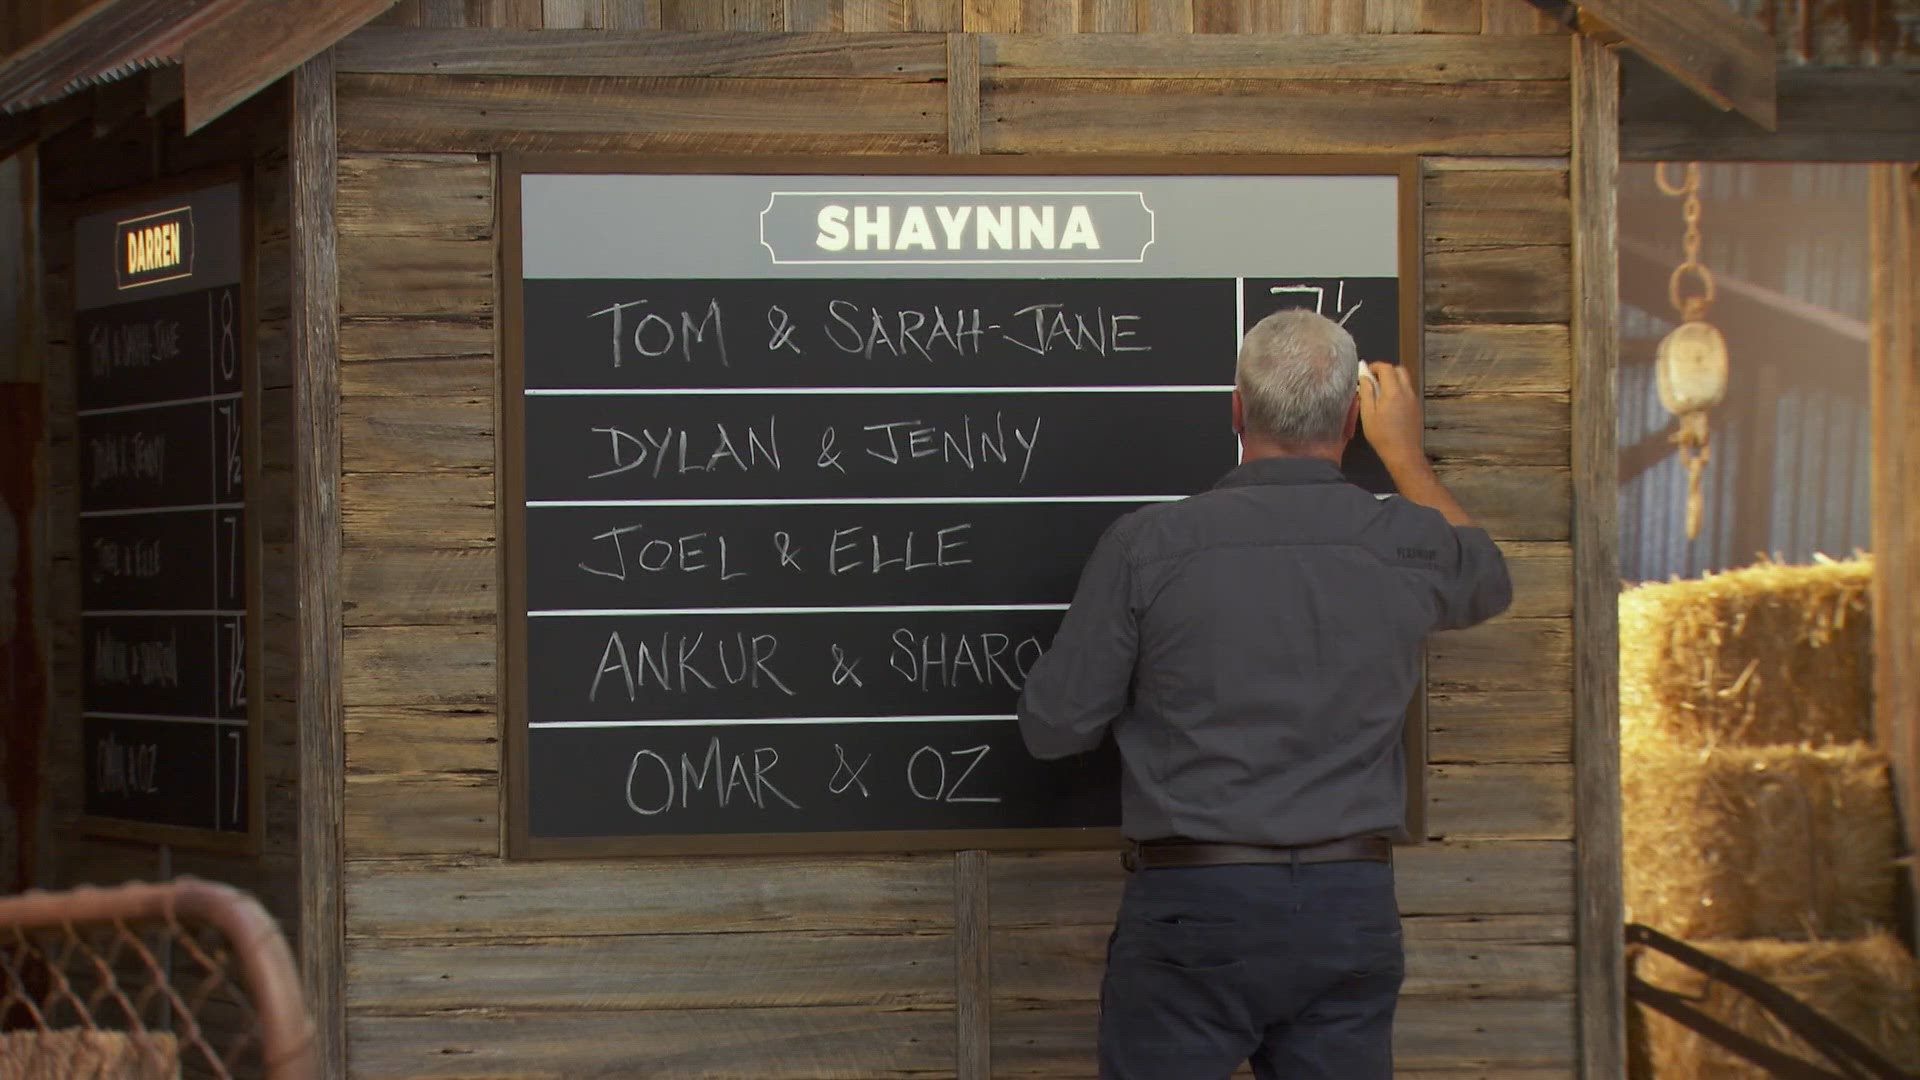 DARREN
TOM & SARAH-JANE 8
DYLAN & JENNY 7½
JOEL & ELLE 7
ANKUR & SHARON 7½
OMAR & OZ 7
SHAYNNA
TOM & SARAH-JANE 7
DYLAN & JENNY
JOEL & ELLE
ANKUR & SHARO
OMAR & OZ